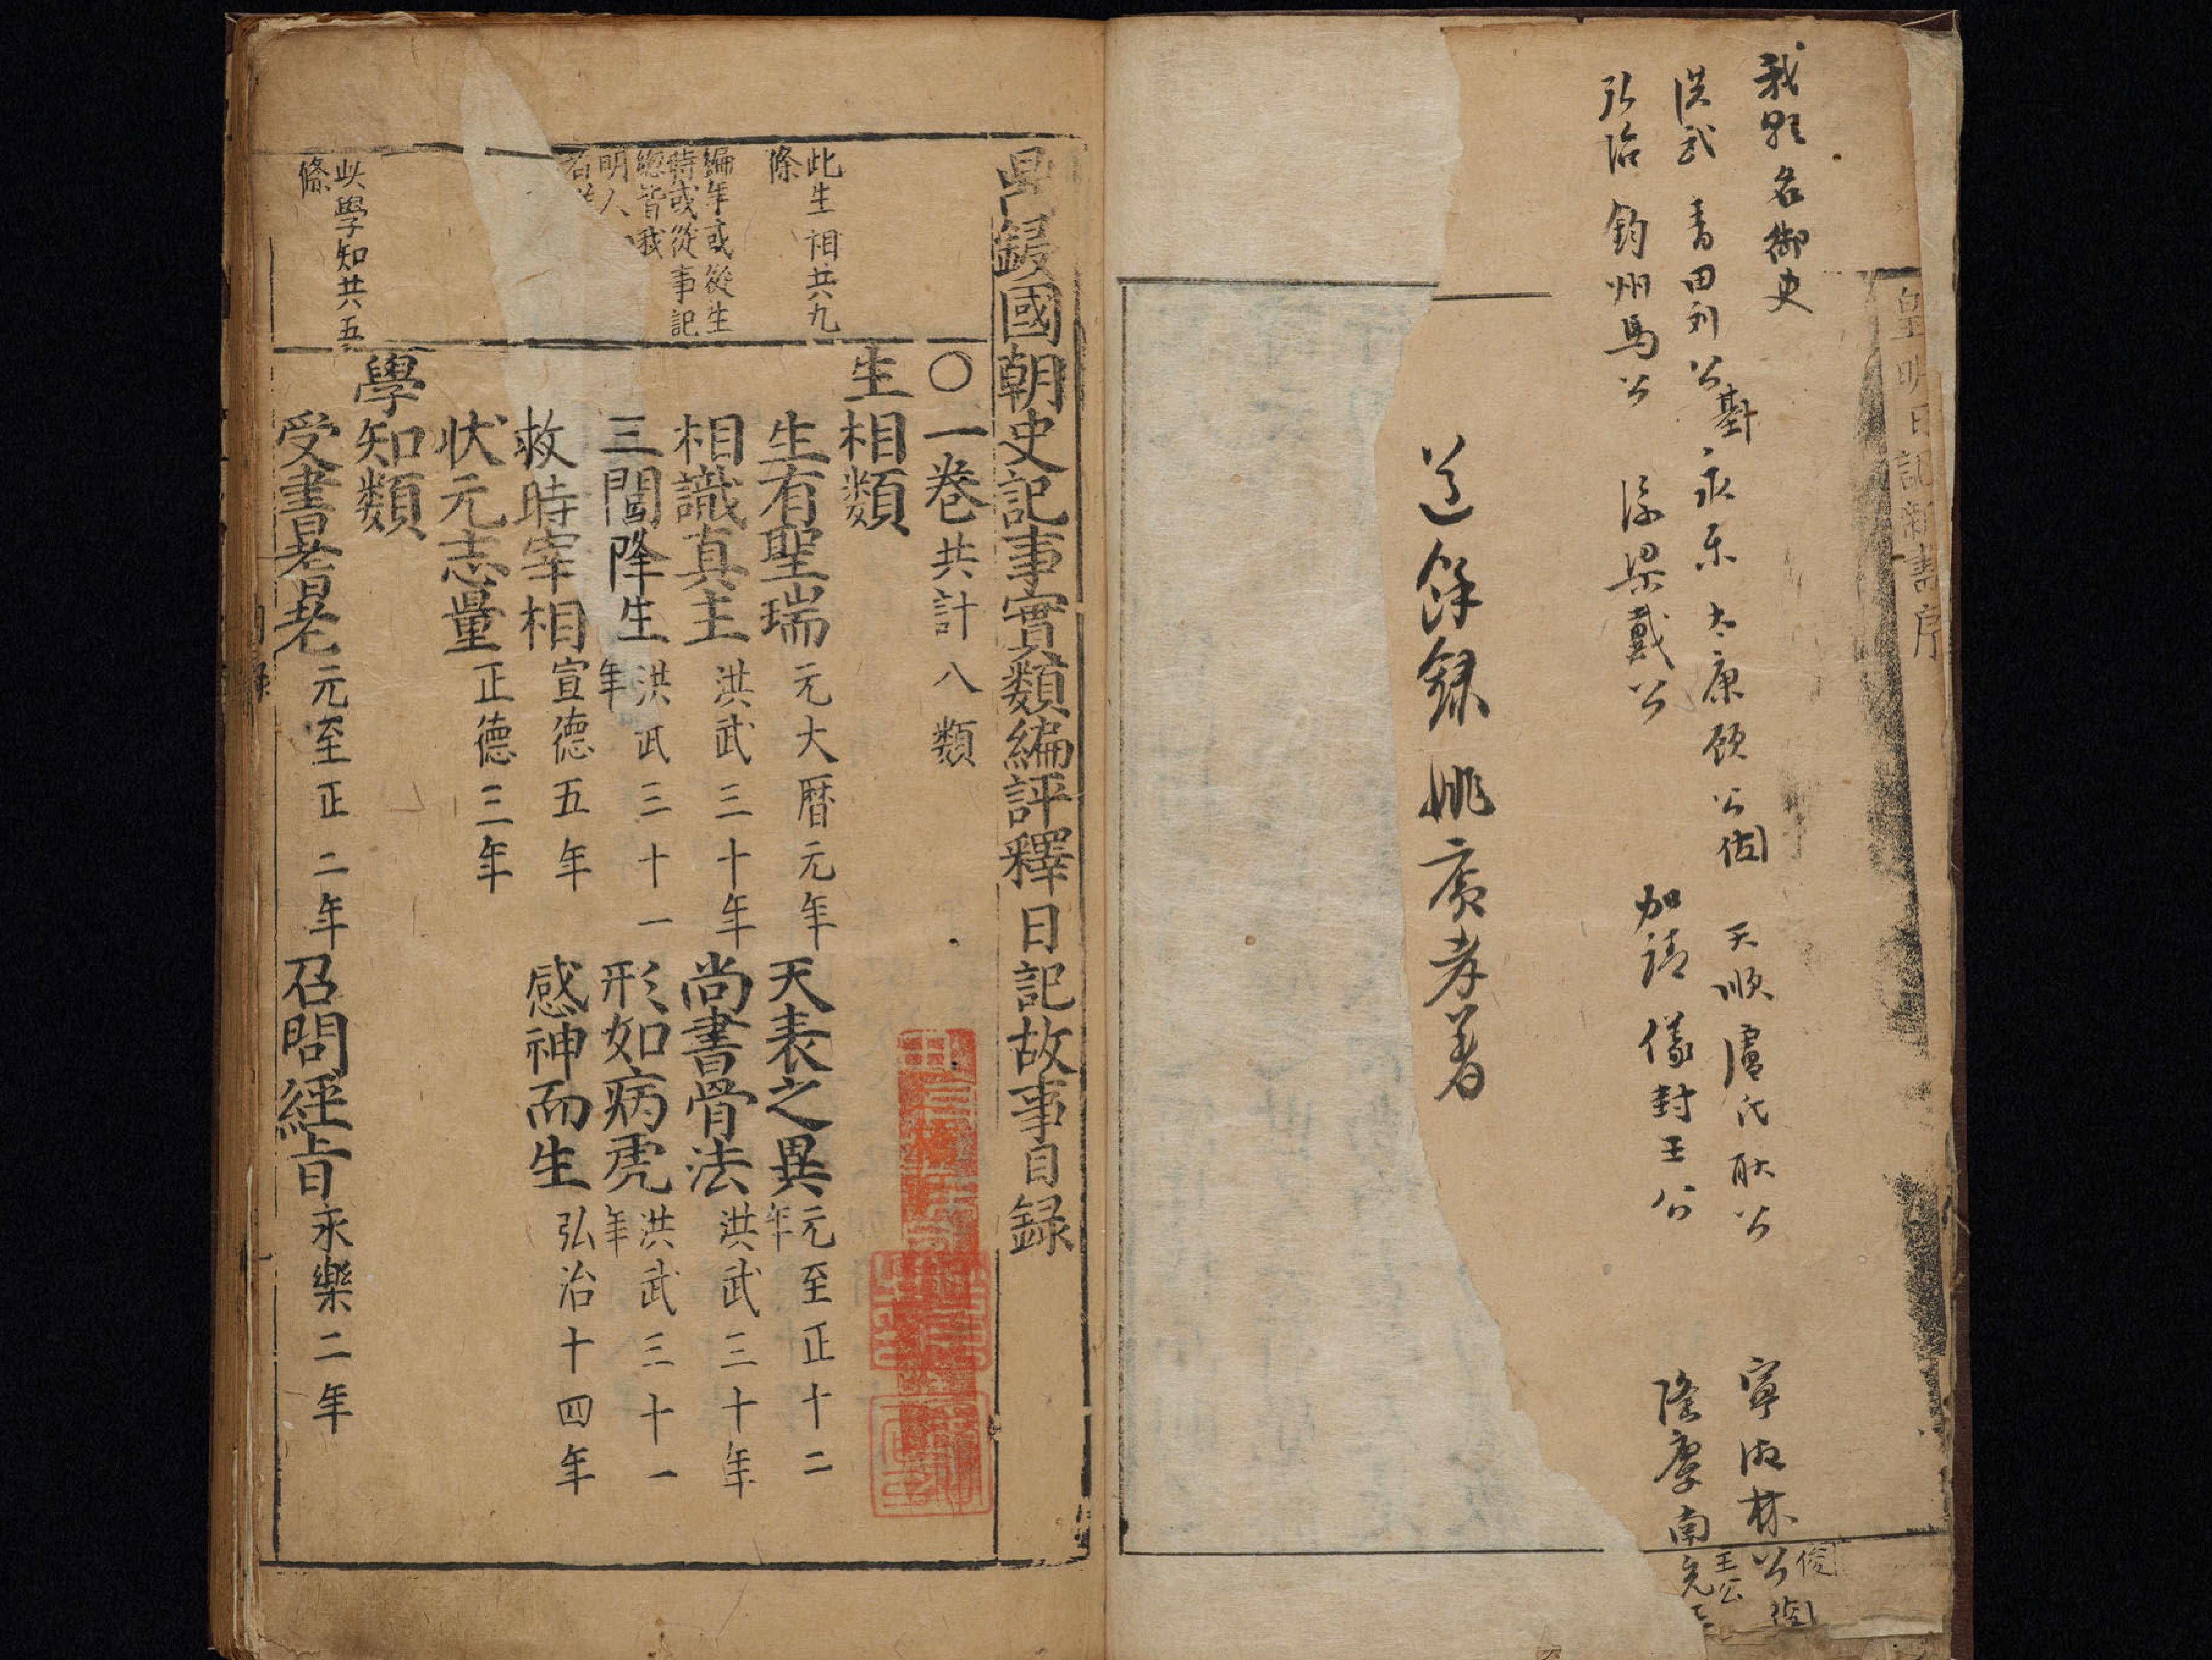 皇明日記新書序
我朝名御史
洪武 青田刘公基 永乐 太康顾公佐 天順 盧氏耿公 寧 林公俊
弘治 鈞州馬公 浮梁戴公 加靖 儀封王公 隆慶南充王公
道餘録姚廣孝著
鋟國朝史記事實類編評釋日記故事目録
〇一卷共計八類
生相類
此生相共九條
生有聖瑞 元大曆元年 天表之異 元至正十二年
相識真主 洪武三十年 尚書骨法 洪武三十年
編年或從生時或從事記總皆我明人
三閭降生 洪武三十一年 形如病虎 洪武三十一年
救時宰相 宣德五年 感神而生 弘治十四年
状元志量 正德三年
學知類
此學知共五條
受書晃晃 元至正二年 召問經旨 永樂二年